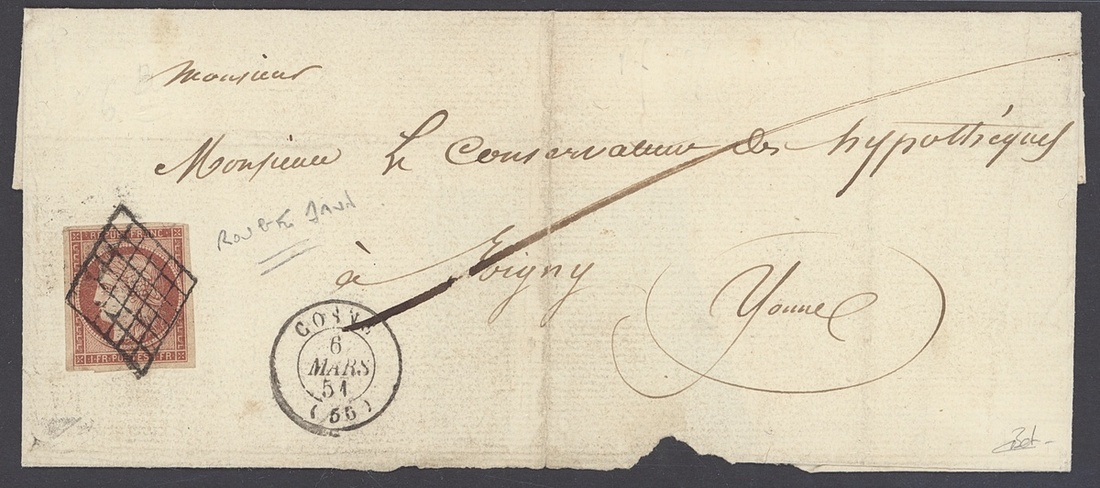 Monsieur
Monsieur Le Conservateur des hypothéques
ROUGE
à Joigny
Yonne
REPUB FRANC
1 FR POSTES 1 FR
COSNE
6
MARS
51
(56)